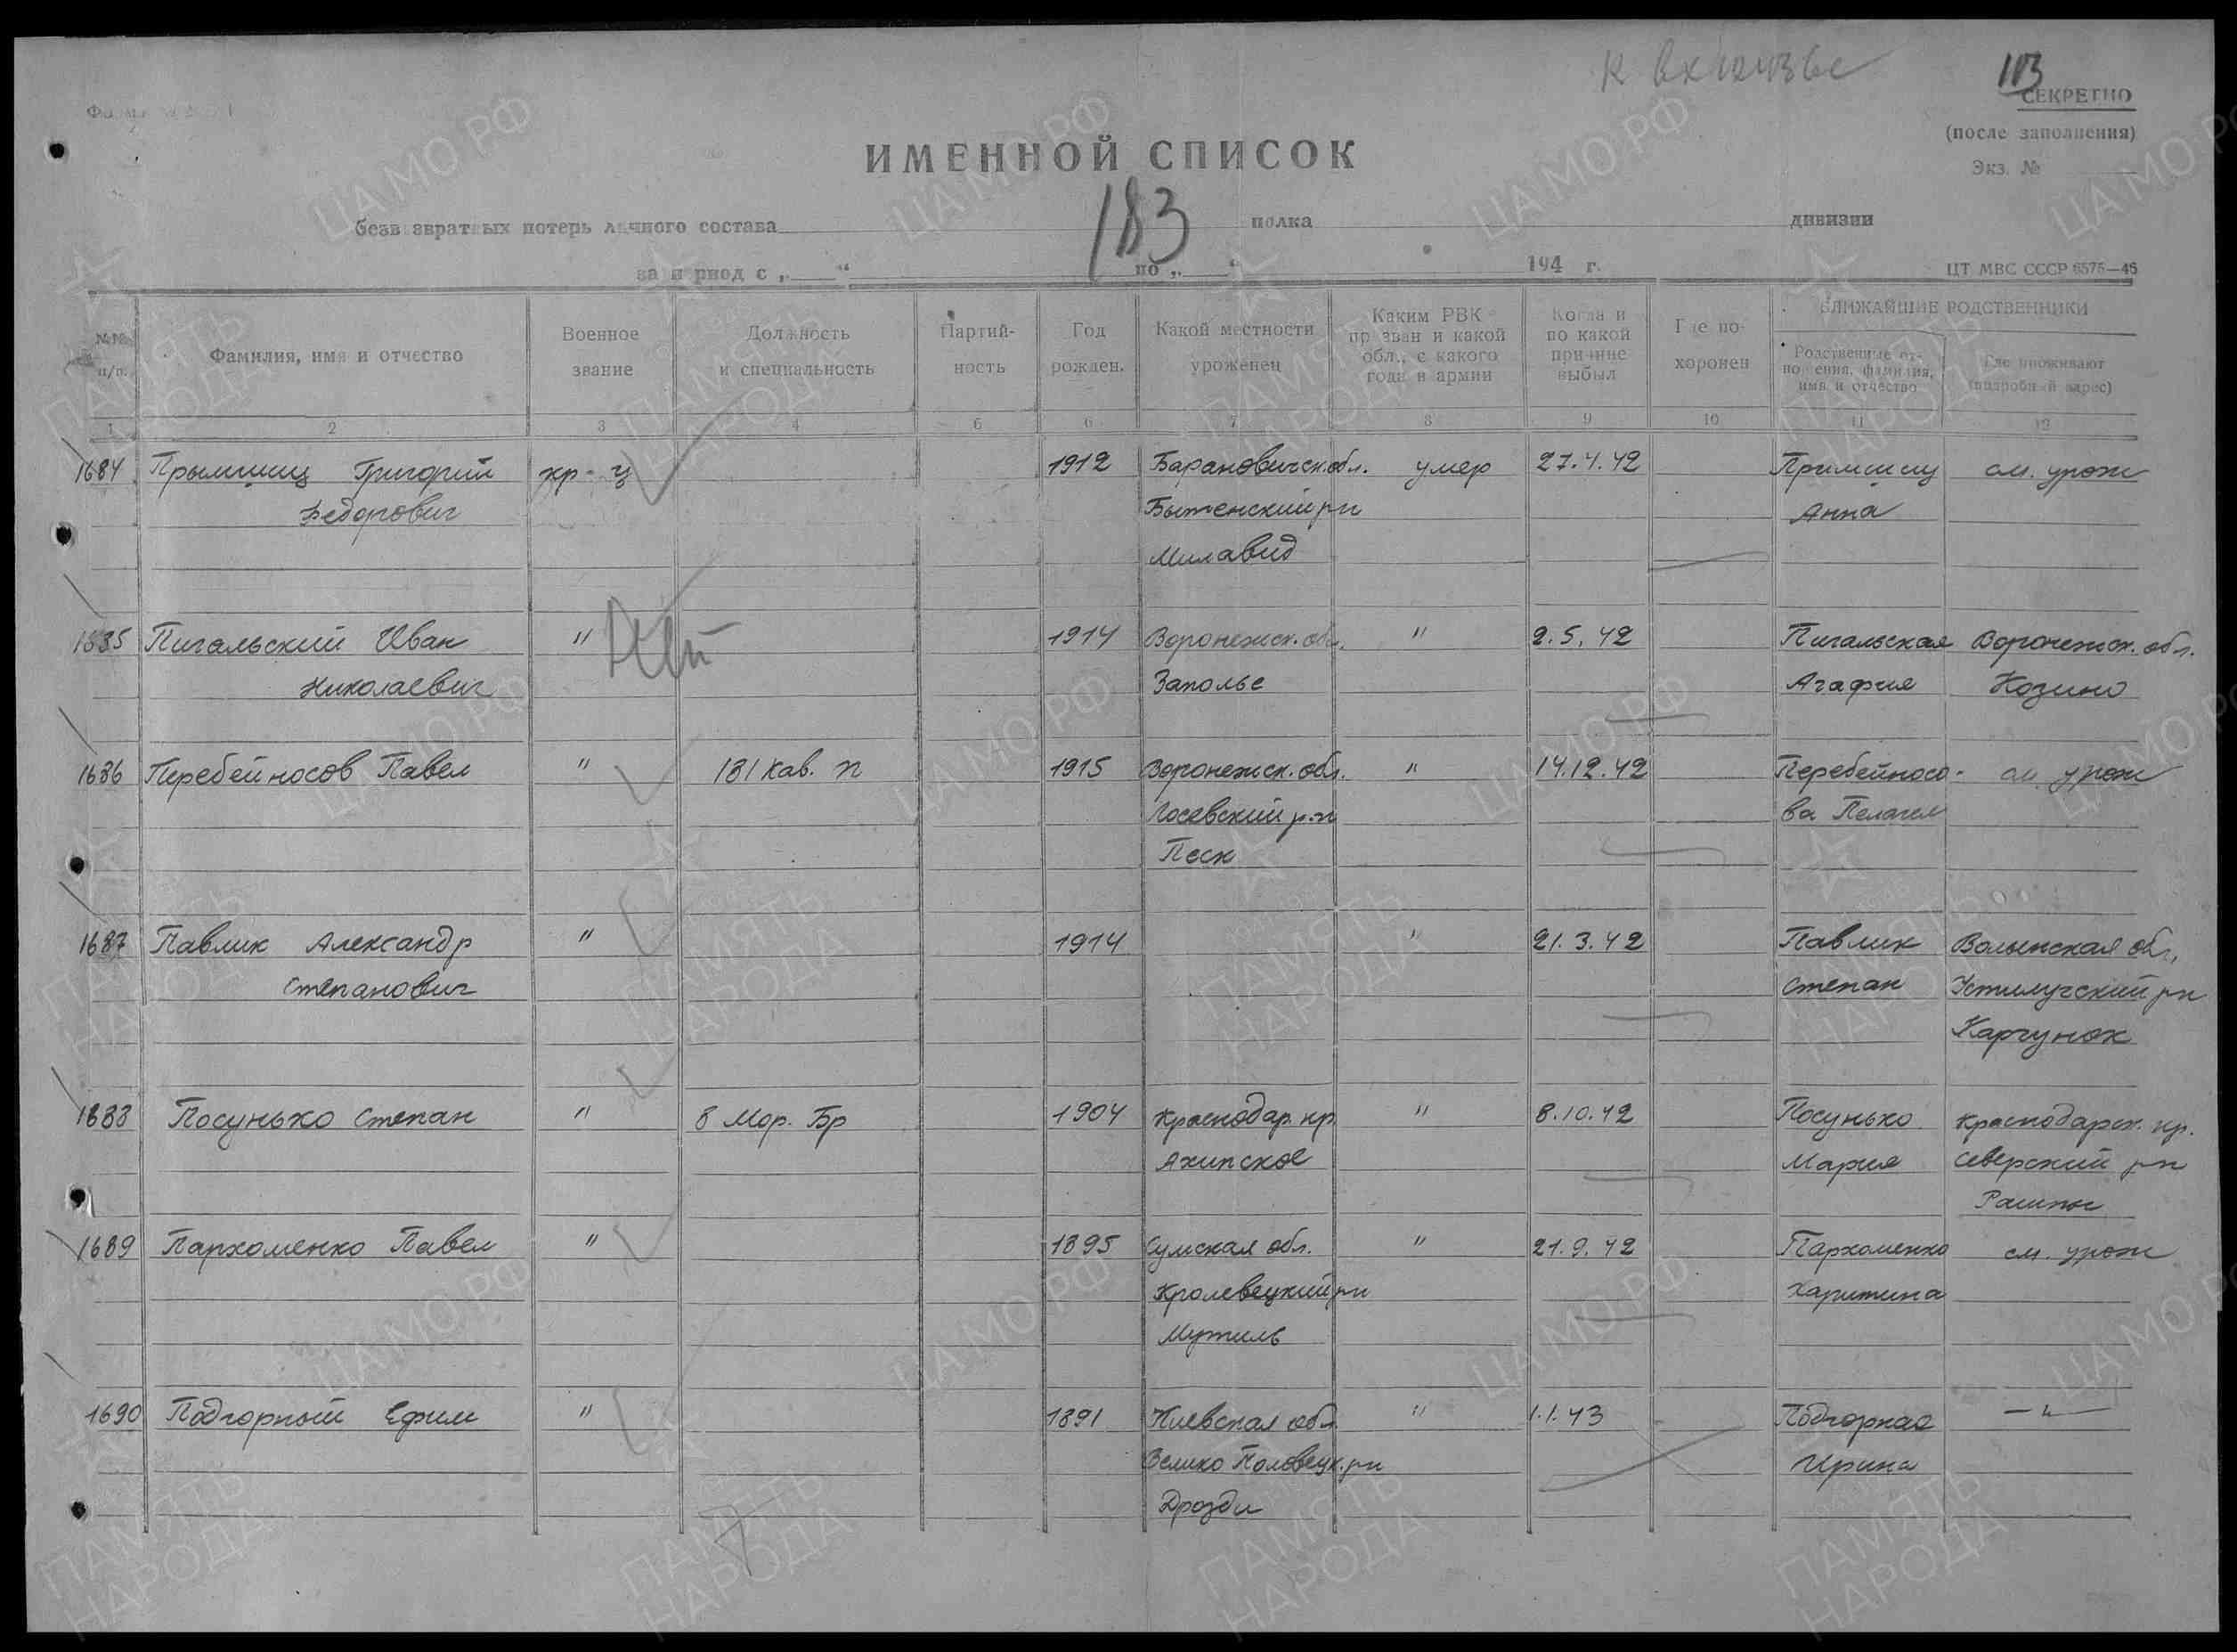 113
СЕКРЕТНО
(после заполнения)
Экз. №
ИМЕННОЙ СПИСОК
183
безвозвратных потерь личного состава полка дивизии
за период с „ “ по „ “ 194 г.
ЦТ МВС СССР 6575—46
№№ п/п. Фамилия, имя и отчество Военное звание Должность и специальность Партийность Год рожден. Какой местности уроженец Каким РВК призван и какой обл., с какого года в армии Когда и по какой причине выбыл Где похоронен БЛИЖАЙШИЕ РОДСТВЕННИКИ
Родственные отношения, фамилия, имя и отчество Где проживают (подробный адрес)
1 2 3 4 5 6 7 8 9 10 11 12
1684 Прымшиц Григорий кр-ц 1912 Барановичск. обл. умер 27.4.42 Примшиц см. урож
Федорович Бытенский р-н Анна
Милавид
1685 Пигальский Иван " 1914 Воронежск. обл. " 2.5.42 Пигальская Воронежск. обл.
Николаевич Заполье Агафия Козино
1686 Перебейносов Павел " 131 Кав. п 1915 Воронежск. обл. " 14.12.42 Перебейносо- см. урож
Лосевский р-н ва Пелагея
Песк
1687 Павлик Александр " 1914 " 21.3.42 Павлик Волынская обл.
Степанович Степан Устилугский р-н
Карчунок
1688 Посунько Степан " 8 Мор. Бр 1904 Краснодар. кр. " 8.10.42 Посунько Краснодарск. кр.
Ахипское Мария Северский р-н
1689 Пархоменко Павел " 1895 Сумская обл. " 21.9.42 Пархоменко см. урож
Кролевецкий р-н Харитина
Мутиль
1690 Подгорный Ефим " 1891 Киевская обл. " 1.1.43 Подгорная — " —
Велико Половецк. р-н Ирина
Дрозды
ЦАМО РФ
ПАМЯТЬ НАРОДА